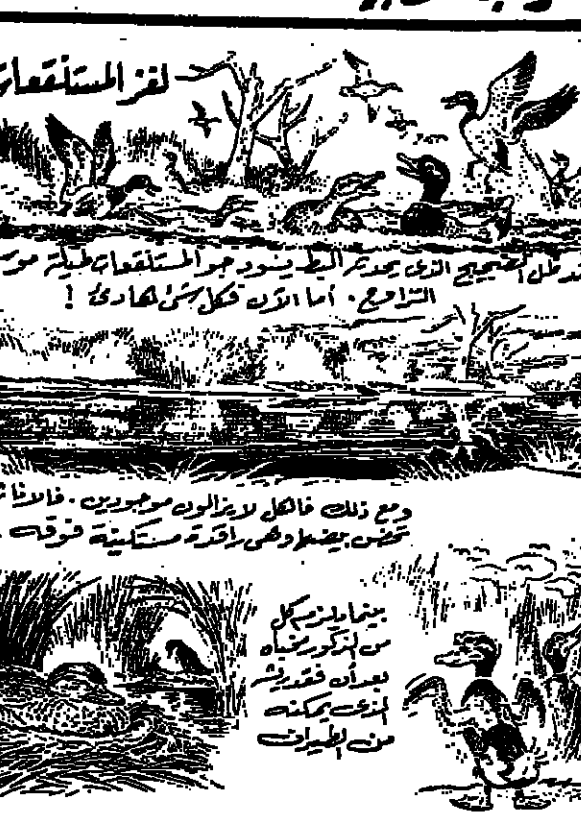 لغز المستنقعات
ظل الضجيج الذى يحدثه البط يسود جو المستنقعات طيلة
التزاوج . أما الآن فكل شئ هادئ !
ومع ذلك فالكل لا يزالون موجودين . فالاناث
تحضن بيضها وهى راقدة مستكينة فوقه .
بينما يلزم كل
من الذكور مخبأه
بعد أن فقد ريشه
الذى يمكنه
من الطيران